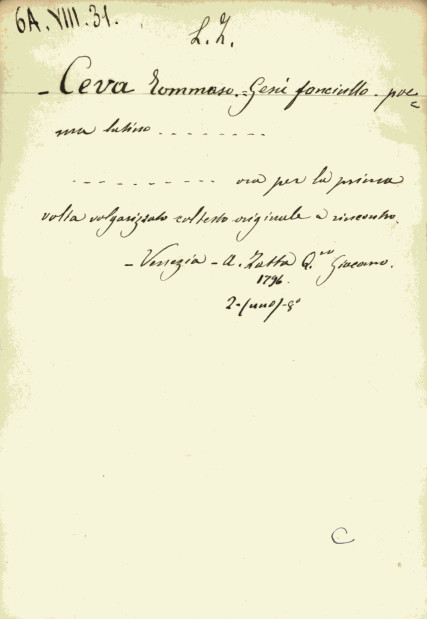 6A.VIII.31.
L. Z.
- Ceva Tommaso.- Gesù fanciullo - poe=
ma latino . . . . . . . .
. . . . . . . . . . . ora per la prima
volta volgarizzato col testo originale a rincontro.
- Venezia - A. Zatta Q.m Giacomo.
1796.
2-(uno)-8°
C